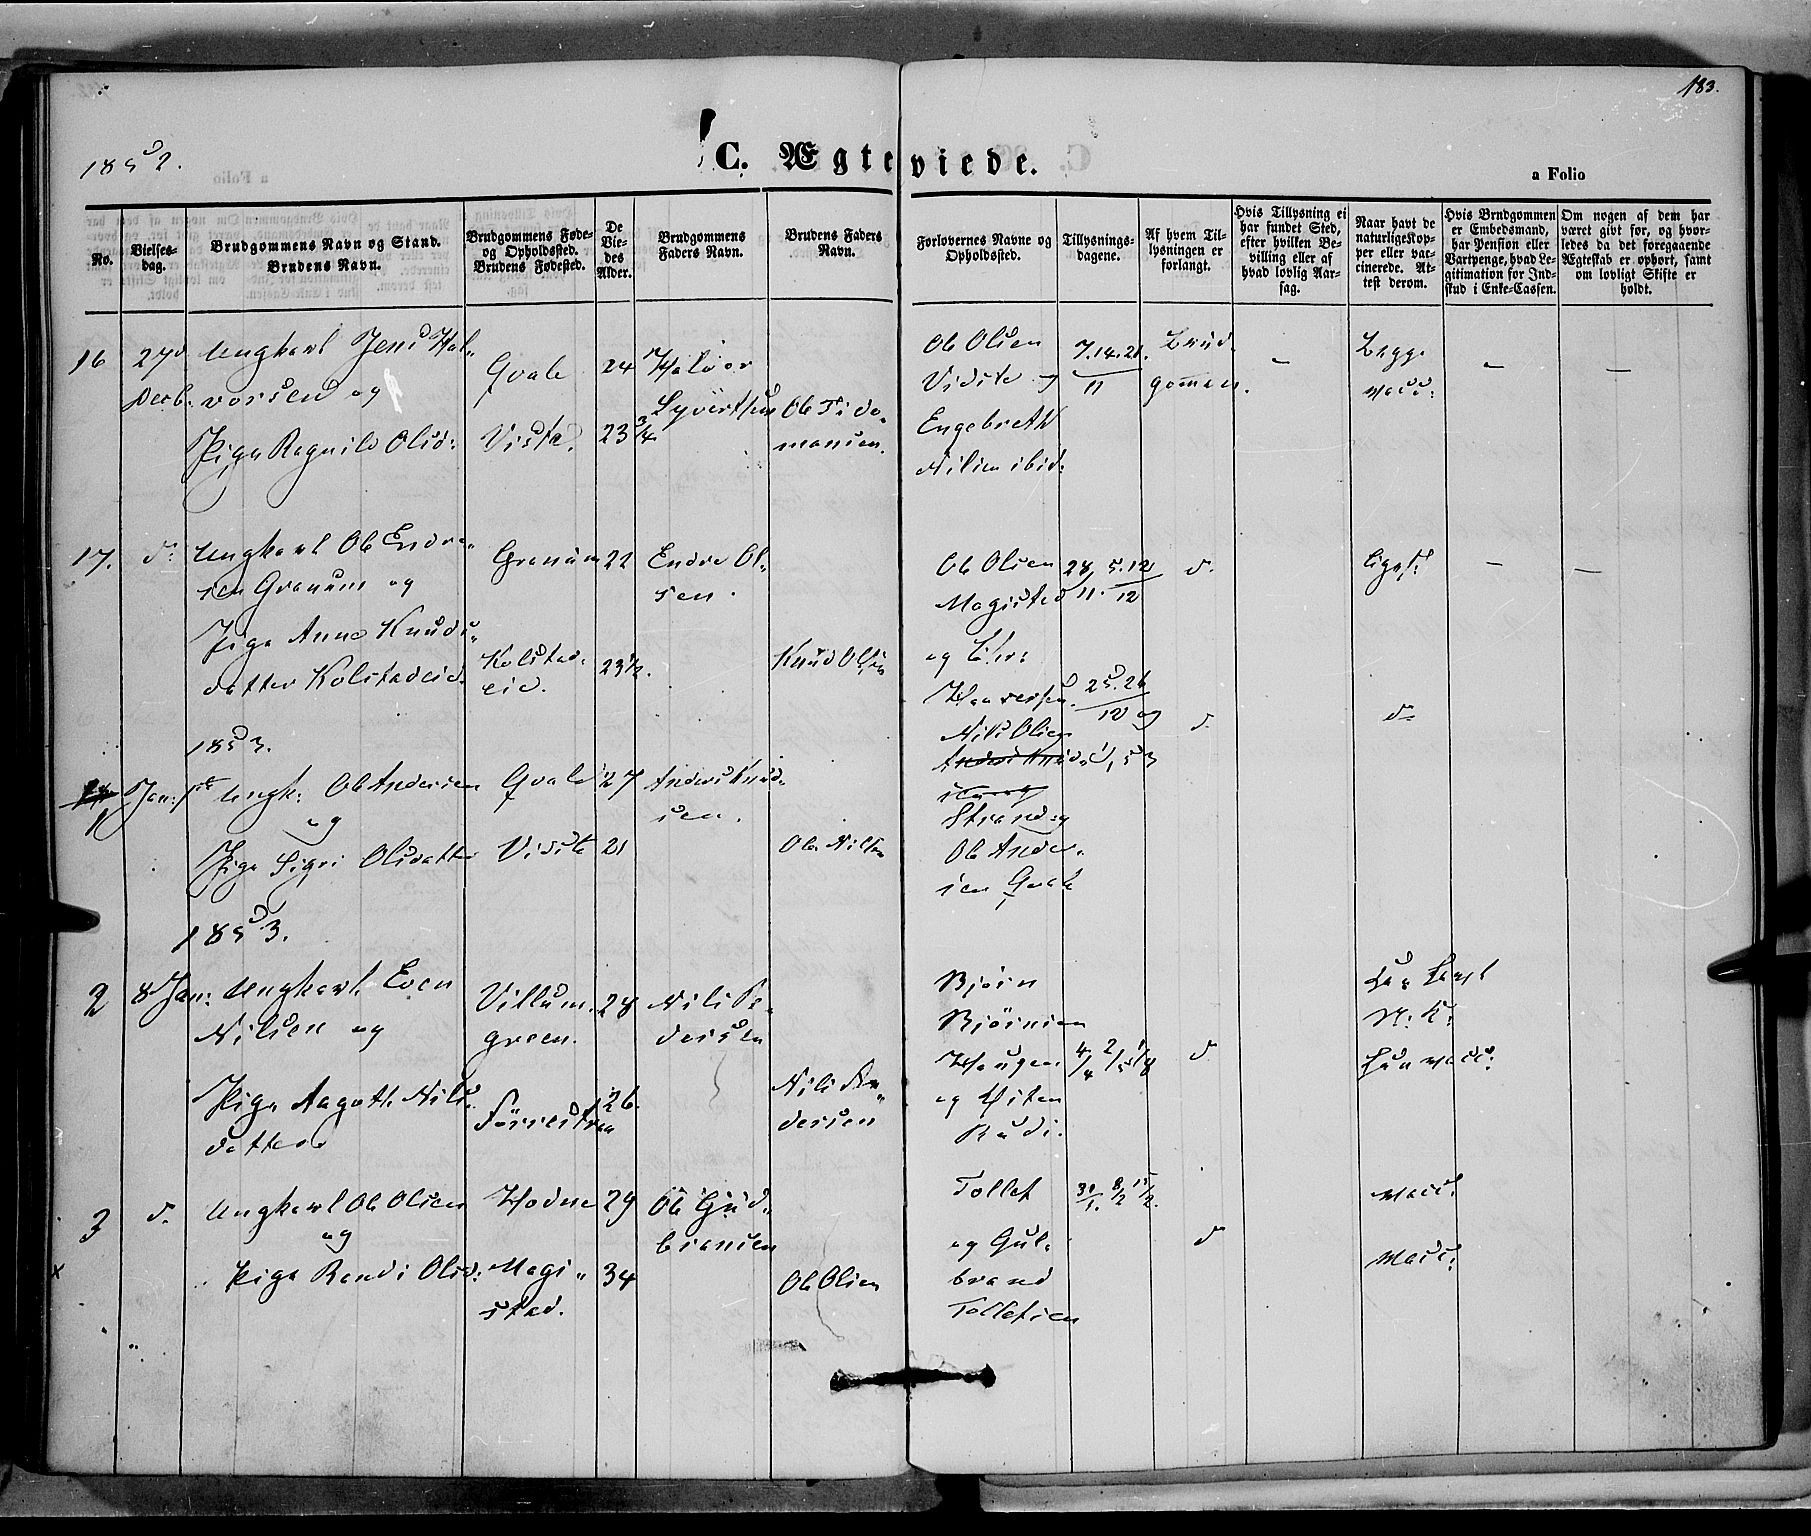 183.
1852.
C. Ægteviede.
a Folio
No.
Vielses-
dag.
Brudgommens Navn og Stand.
Brudens Navn.
Brudgommens Føde-
og Opholdssted.
Brudens Fødested.
De
Vie-
des
Alder.
Brudgommens
Faders Navn.
Brudens Faders
Navn.
Forlovernes Navne og
Opholdssted.
Tillysnings-
dagene.
Af hvem Til-
lysningen er
forlangt.
Hvis Tillysning ei
har fundet Sted,
efter hvilken Be-
villing eller af
hvad lovlig Aar-
sag.
Naar havt de
naturlige Kop-
per eller vac-
cinerede. At-
test derom.
Hvis Brudgommen
er Embedsmand,
har Pension eller
Vartpenge, hvad Le-
gitimation for Ind-
skud i Enke-Cassen.
Om nogen af dem har
været givt før, og hvor-
ledes da det foregaaende
Ægteskab er ophørt, samt
om lovligt Skifte er
holdt.
16
27d
Decb.
Ungkarl Jens Hal-
vorsen og
Pige Ragnild Olsd:
Qvale
Viste.
24
23 3/4
Halvor
Syvertsen
Ole Tide-
mansen.
Ole Olsen
Viste og
Engebreth
Nilsen ibid.
7.14.21.
11
Brud-
gommen.
Begge
vacc:
17.
d:
Ungkarl Ole Endre-
sen Granum og
Pige Anne Knuds-
datter Kolstadeid.
Granum
Kolstad-
eid.
22
23 1/2.
Endre Ol-
sen.
Knud Olsen
Ole Olsen
Magistad
og
28, 5.12
11. 12
d.
1853.
1
Jan: 1ste
Ungk: Ole Andersen
og
Pige Sigri Olsdatter
Qvale
Viste
27
21
Anders Knud-
sen.
Ole Nilsen
Nils Olsen
Strand og
Ole Ander-
sen Qvale
25.26
12 og
1, 53
d.
d-
1853.
2
8 Jan:
Ungkarl Even
Nilsen og
Pige Aagoth Nils-
datter
Villum-
green.
28
26
Nils Pe-
dersen
Nils An-
dersen
Bjørn
Bjørnsen
Haugen
og Østen
Rudi.
d
Han havt
N: K:
Hun vacc:
3
d.
Ungkarl Ole Olsen
og
Pige Randi Olsd:
Hodne
Magi-
stad.
29
34
Ole Gud-
bransen
Ole Olsen
Tollef
og Gul-
brand
Tollefsen
30/1. 8/2 15/2.
d
vacc:
vacc: